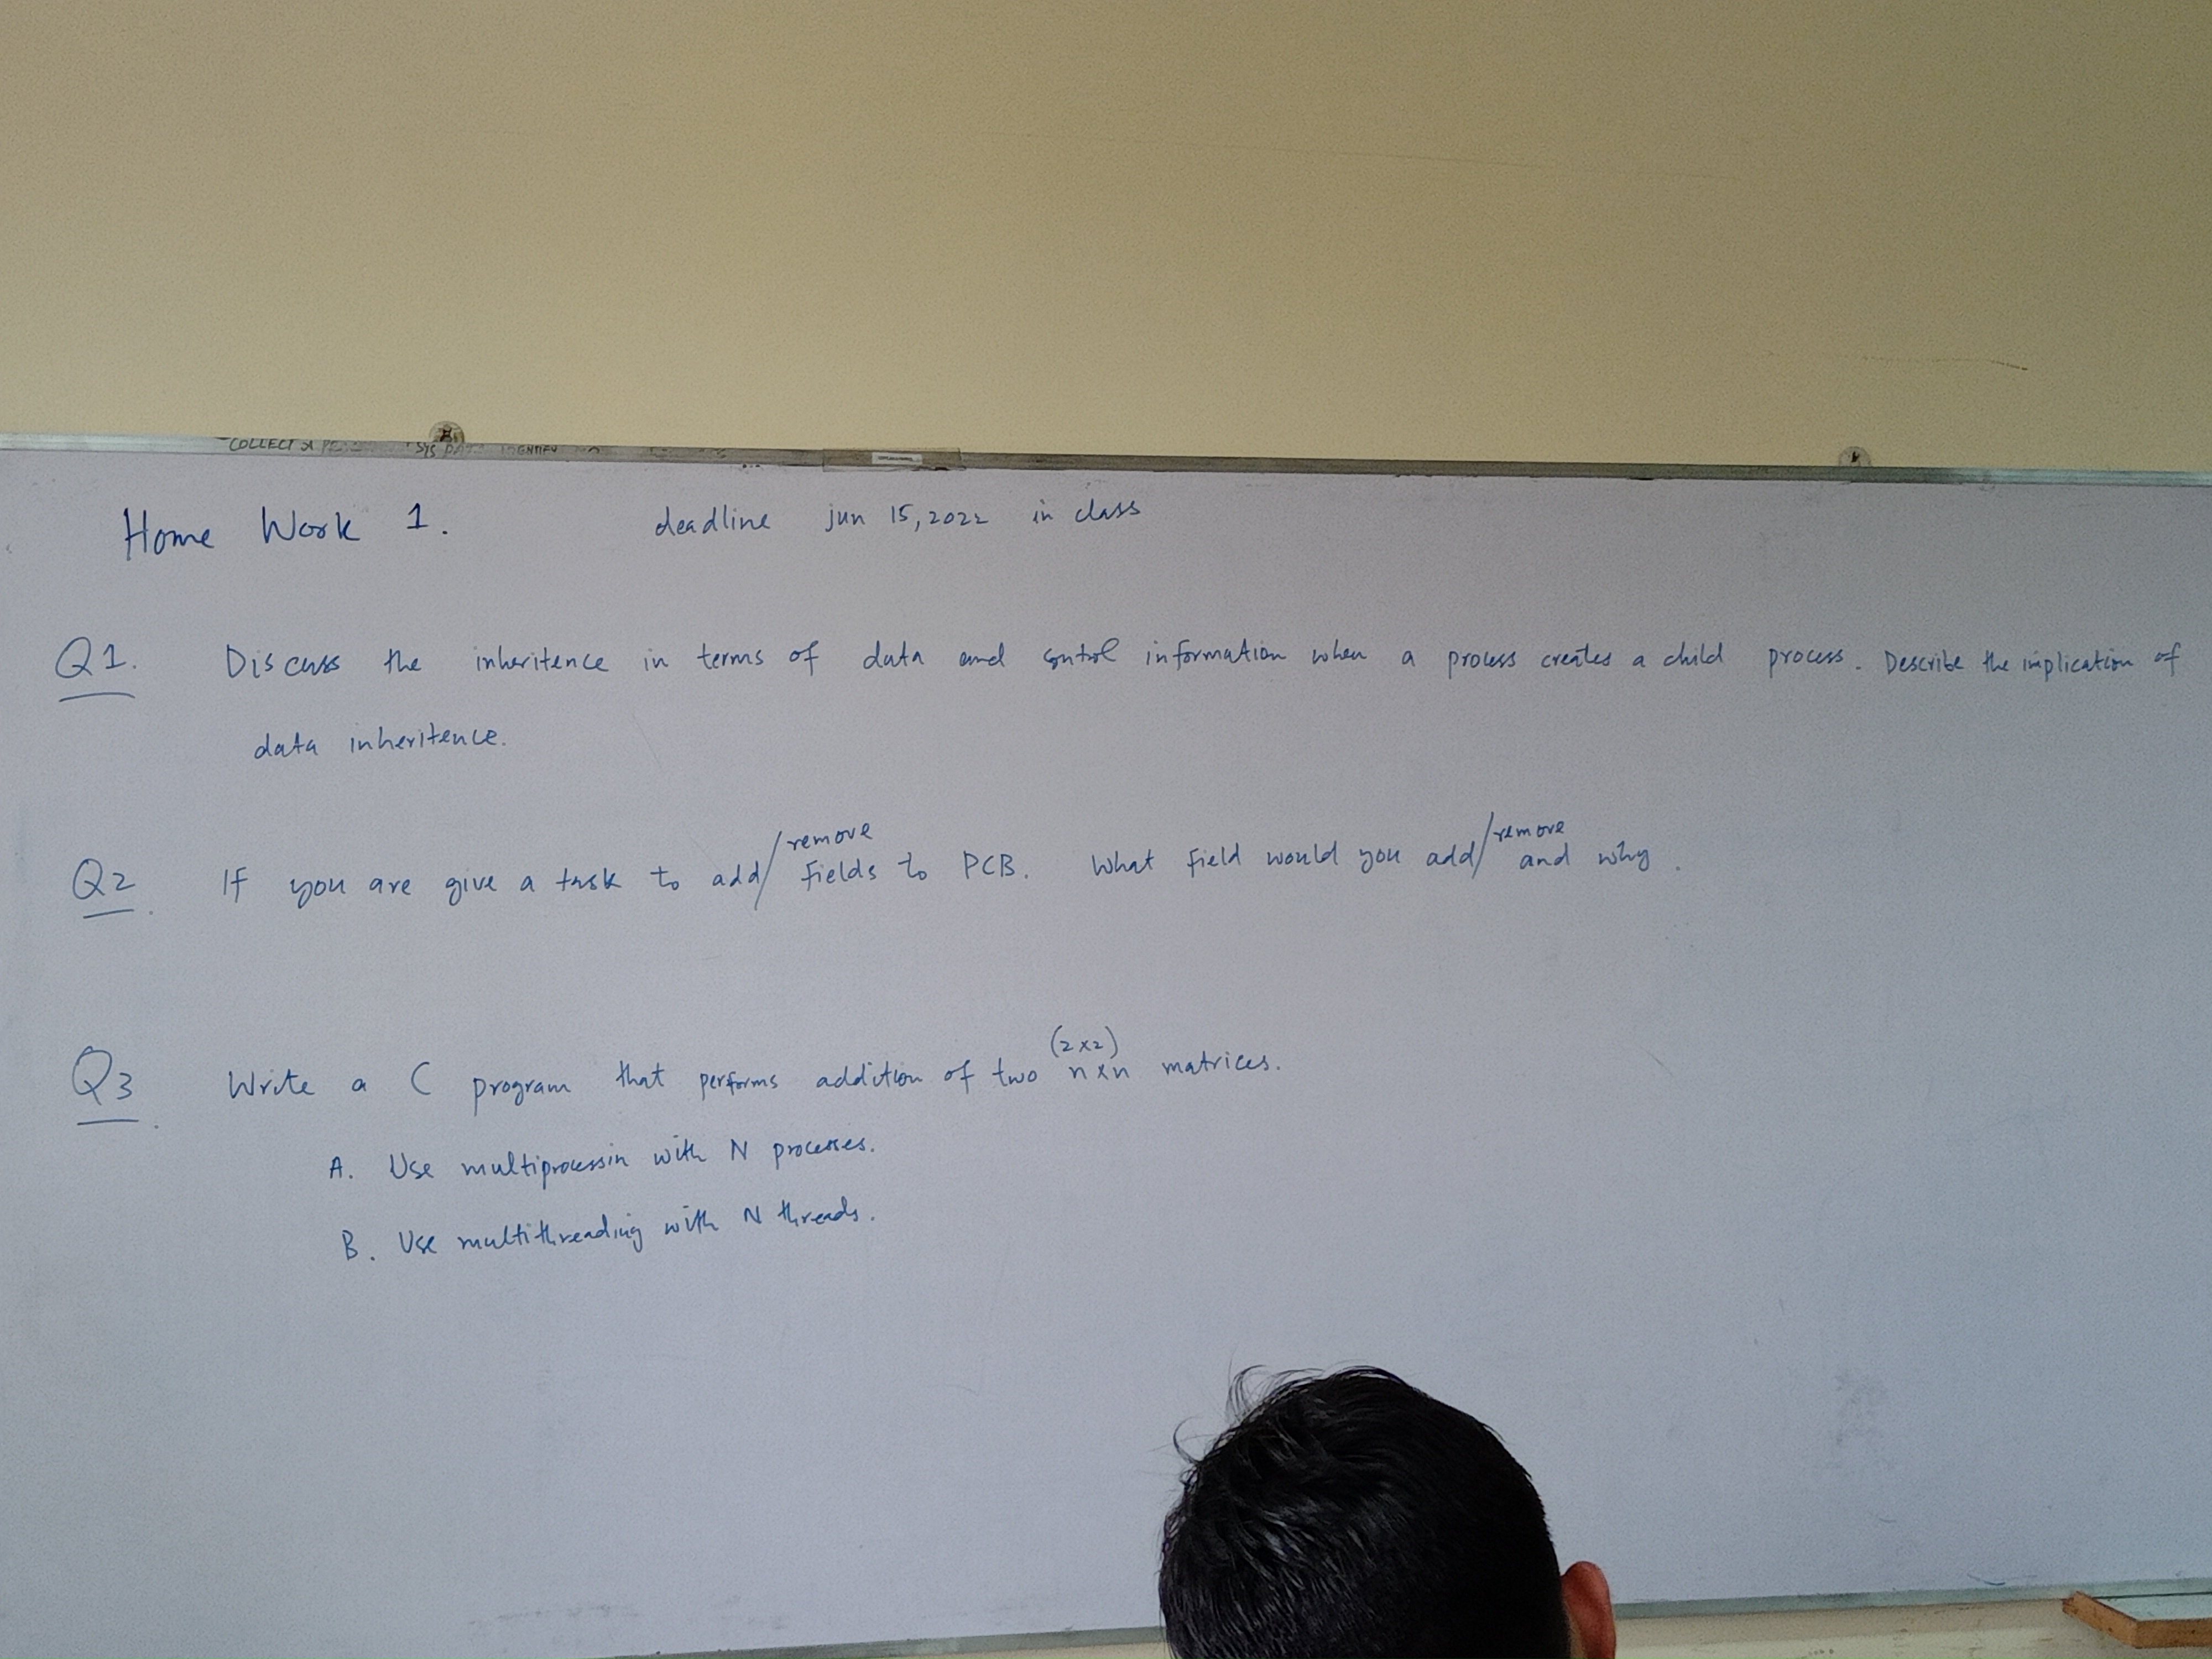 COLLECT
SYS
Home Work 1. deadline jun 15, 2022 in class
Q1. Discuss the inheritence in terms of data and control information when a process creates a child process. Describe the implication of
data inheritence.
Q2. If you are give a task to add/remove fields to PCB. What field would you add/remove and why.
Q3. Write a C program that performs addition of two (2x2) nxn matrices.
A. Use multiprocessin with N processes.
B. Use multithreading with N threads.